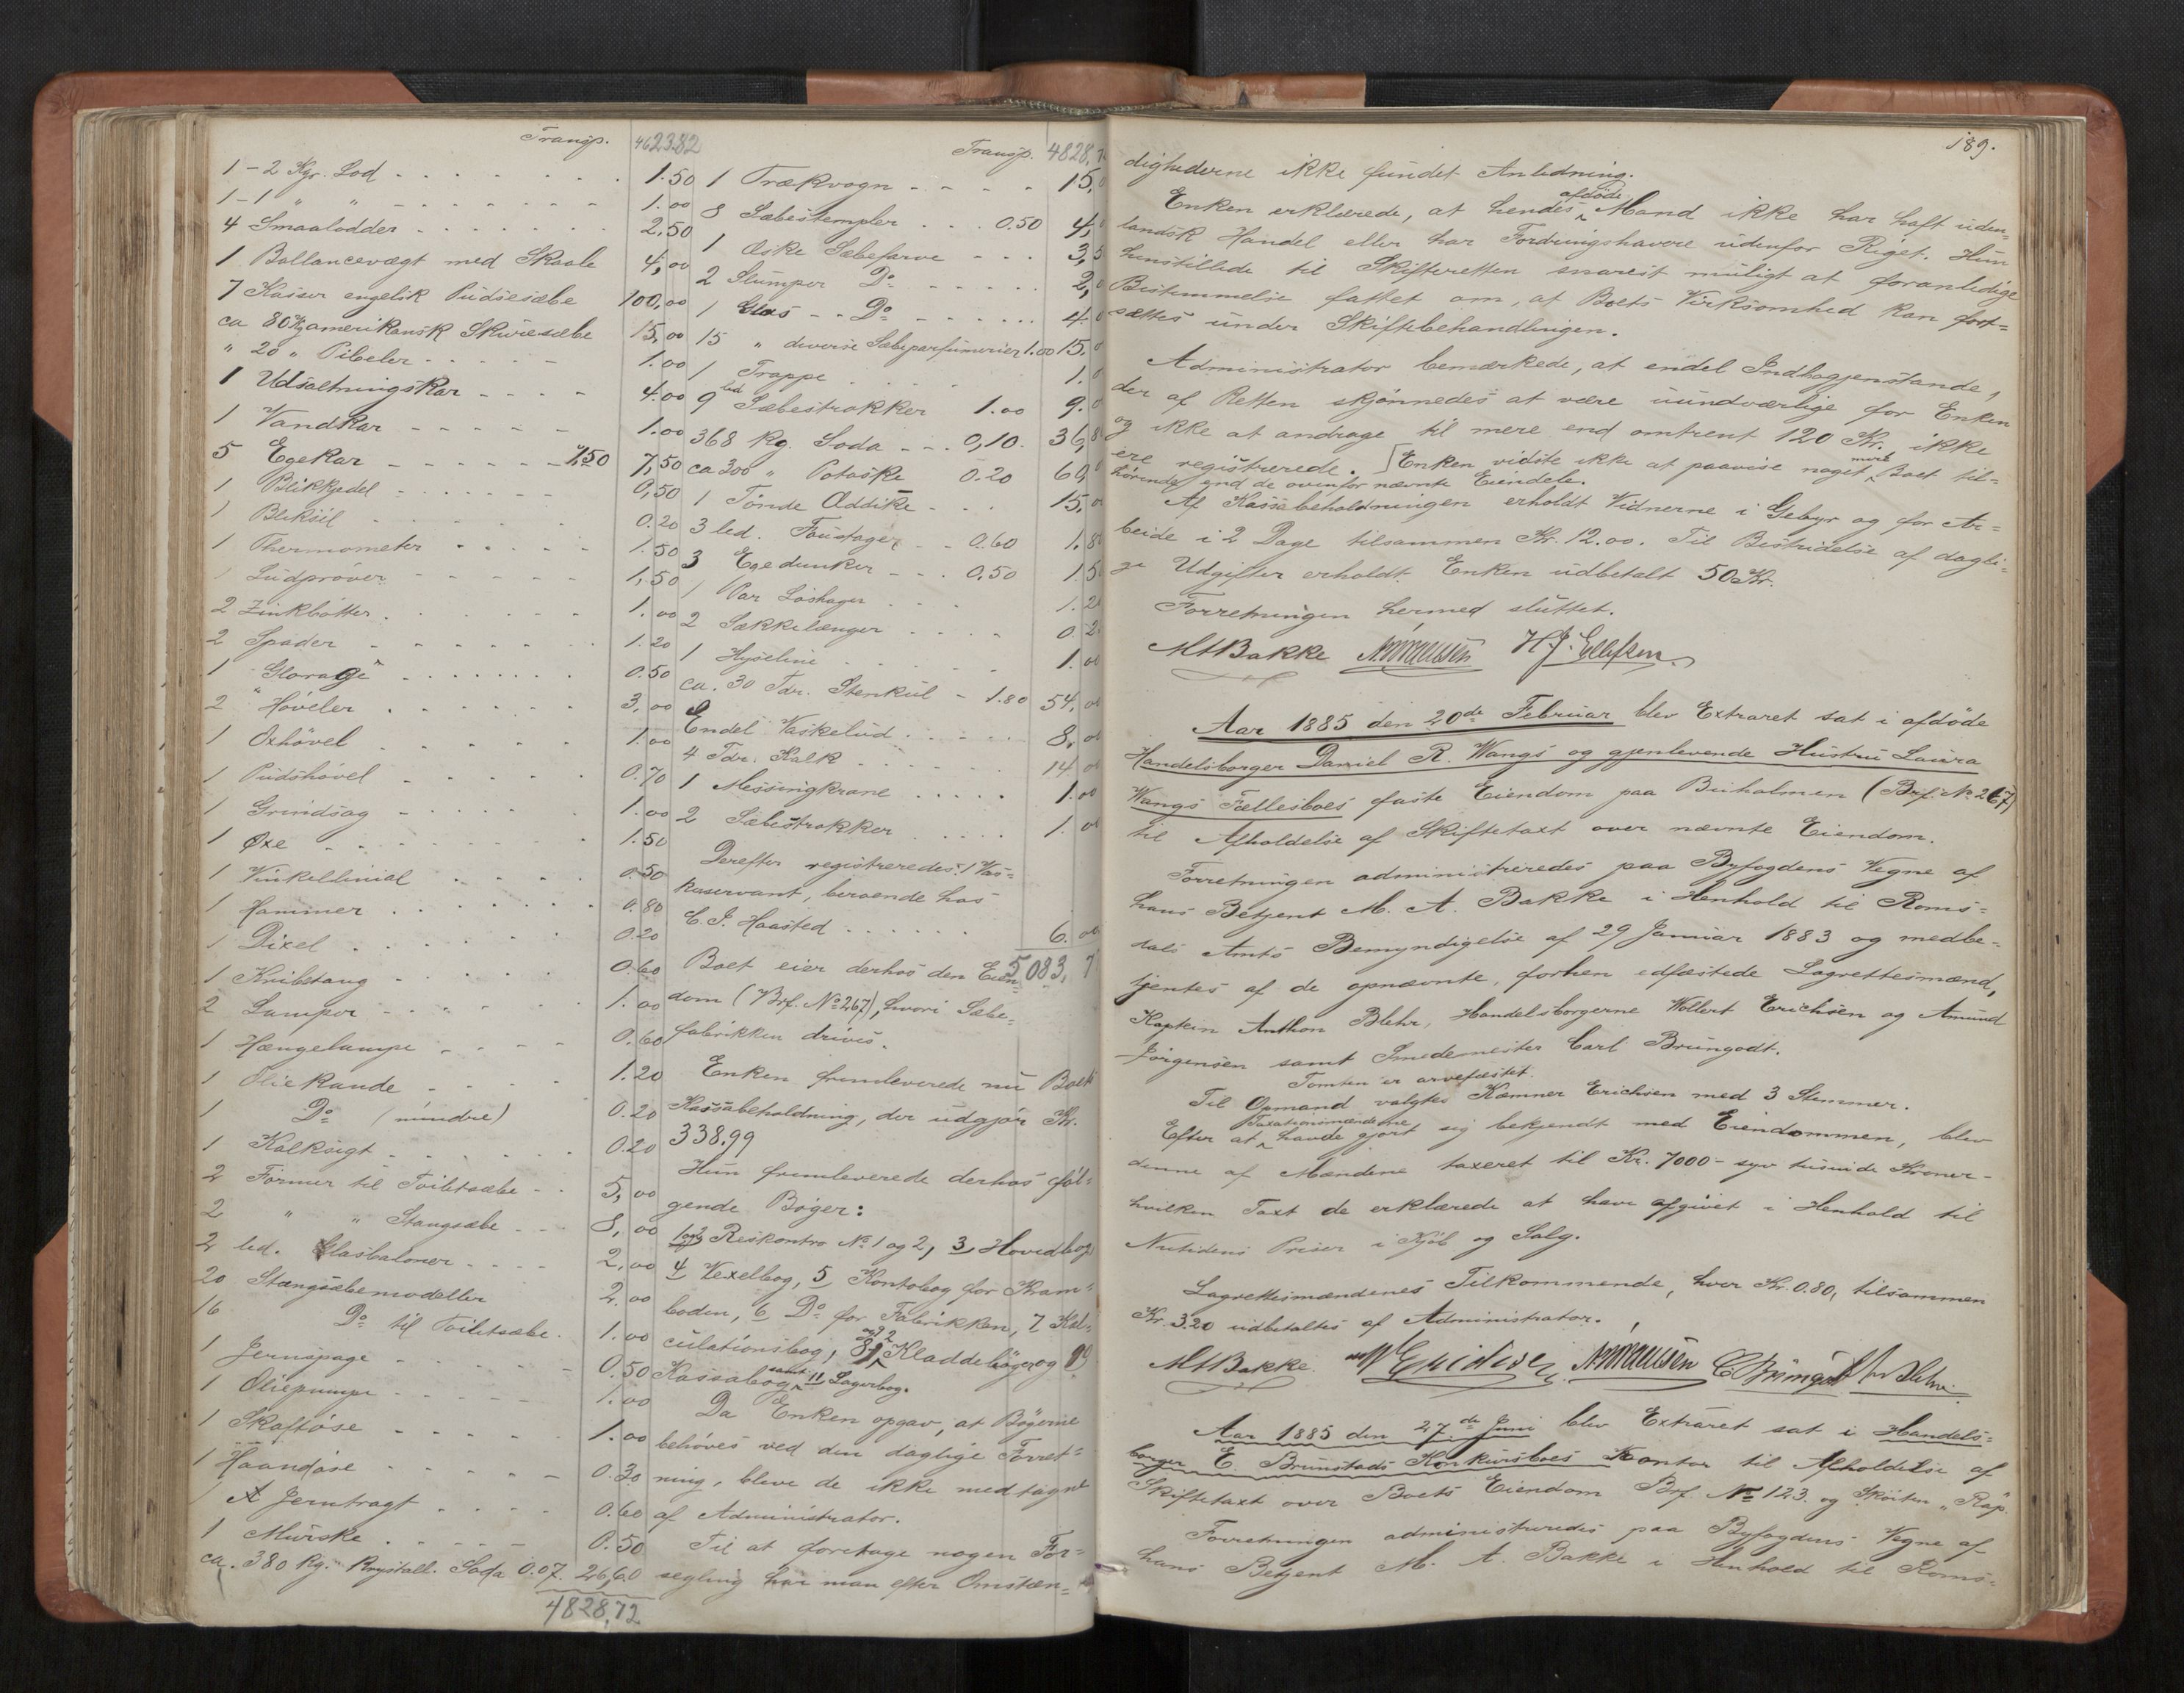 Transp. 4623.82
1 - 2 Kgr. Lod 1.50
1 - 1 " " 1.00
4 Smaalodder 2.50
1 Ballancevægt med Skaale 4,00
7 Kasser engelsk Pudsesæbe 100,00
ca 80 Kg amerikansk Skuresæbe 15,00
" 20 " Pibeler 1.00
1 Udsaltningskar 4.00
1 Vandkar 1.00
5 Egekar 1,50 7,50
1 Blikkjedel 0,50
1 Bliksil 0.20
1 Thermometer 1.50
1 Ludprøver 1,50
2 Zinkbøtter 1.00
2 Spader 1.20
1 0.50
2 Høvler 3,00
1 Oxhøvel 1.00
1 Pudshøvel 0.70
1 Grindsag 1.00
1 Øxe 1.50
1 Vinkellinial 0.50
1 Hammer 0.80
1 Dixel 0.20
1 Knibetang 0.60
2 Lamper 1.00
1 Hængelampe 0.60
1 Oliekande 1.20
1 Do (mindre) 0.20
1 Kalksigt 0.20
2 Former til Toiletsæbe 5,00
2 " " Stangsæbe 8,00
2 led. Glasbaloner 2,00
20 Stangsæbemodeller 2.00
16 Do til Toiletsæbe 1.00
1 Jernspage 0.50
1 Oliepumpe 1.00
1 Skaftøse 1.00
1 Haandøse 0.30
1 Jerntragt 0.60
1 Murske 0.50
ca. 380 Kg. Krystall. Soda 0.07. 26,60
4828,72
Transp. 4828,7
1 Trækvogn 15,
8 Sæbestempler 0.50 4,
1 Æske Sæbefarve 3,5
2 Slumper Do 2,
1 Glas - Do 4.
15 " diverse Sæbeparfumerier 1.00 15.
1 Trappe 1.
9 led Sæbestrokker 1.00 9.
368 Kg. Soda 0,10. 36,8
ca 300 " Potaske 0.20 60,
1 Tønde Æddike 15,
3 led. Foustager 0.60 1.8
3 Egedunker 0.50 1.5
1 Par 1.2
2 Sækkelænger 0.2
1 Hyseline 1.00
ca. 30 Tdr. Stenkul - 1.80 54,00
Endel Vaskelud 8,00
4 Tdr. Kalk 14 00
1 Messingkrane 1.00
2 Sæbestrokker 1.00
Derefter registreredes: 1 Vas=
keservant, beroende hos
C. J. Haasted 6.00
5083, 7
Boet eier derhos den Eien=
dom (Brf. No 267), hvori Sæbe=
fabrikken drives.
Enken fremleverede nu Boets
Kassabeholdning, der udgjør Kr.
338.99
Hun fremleverede derhos føl=
gende Bøger:
1 og 2 Reskontro No 1 og 2, 3 Hovedbog
4 Vexelbog, 5 Kontobog for Kram=
boden, 6 Do for Fabrikken, 7 Kal=
culationsbog, 8 og 9 2 Kladdebøger og 10
Kassabog samt 11 Lagerbog.
Da Enken opgav, at Bøgerne
behøves ved den daglige Forret=
ning, bleve de ikke medtagne
af Administrator.
Til at foretage nogen For=
segling har man efter Omstæn=
189.
dighederne ikke fundet Anledning.
Enken erklærede, at hendes afdøde Mand ikke har haft uden=
landsk Handel eller har Fordringshavere udenfor Riget. Hun
henstillede til Skifteretten snarest muligt at foranledige
Bestemmelse fattet om, at Boets Virksomhed kan fort=
sættes under Skiftebehandlingen.
Administrator bemærkede, at endel Indbogjenstande,
der af Retten skjønnedes at være uundværlige for Enken
og ikke at andrage til mere end omtrent 120 Kr. ikke
ere registrerede. [Enken vidste ikke at paavise noget mere Boet til=
hørende end de ovenfor nævnte Eiendele.
Af Kassabeholdningen erholdt Vidnerne i Gebyr og for Ar=
beide i 2 Dage tilsammen Kr. 12.00. Til Bestridelse af dagli=
ge Udgifter erholdt Enken udbetalt 50 Kr.
Forretningen hermed sluttet.
M A Bakke H. J. Ellefsen.
Aar 1885 den 20de Februar blev Extraret sat i afdøde
Handelsborger Daniel R. Wangs og gjenlevende Hustru Laura
Wangs Fællesboes faste Eiendom paa Buholmen (Brf. No 267)
til Afholdelse af Skiftetaxt over nævnte Eiendom.
Forretningen administreredes paa Byfogdens Vegne af
hans Betjent M. A. Bakke i Henhold til Roms=
dals Amts Bemyndigelse af 29 Januar 1883 og medbe=
tjentes af de opnævnte, forhen edfæstede Lagrettesmænd,
Kaptein Anthon Blehr, Handelsborgerne Wollert Erichsen og Amund
Jørgensen samt Smedemester Carl Brungodt.
Tomten er arvefæstet.
Til Opmand valgtes Kæmner Erichsen med 3 Stemmer.
Efter at Taxationsmændene havde gjort sig bekjendt med Eiendommen, blev
denne af Mændene taxeret til Kr. 7000 - syv tusinde Kroner -
hvilken Taxt de erklærede at have afgivet i Henhold til
Nutidens Priser i Kjøb og Salg.
Lagrettesmændenes Tilkommende, hver Kr. 0.80, tilsammen
Kr. 3.20 udbetaltes af Administrator.
M A Bakke
Aar 1885 den 27de Juni blev Extraret sat i Handels=
borger E. Brunstads Konkursboes Kontor til Afholdelse af
Skiftetaxt over Boets Eiendom Brf. No 123. og Skøiten "Rap".
Forretningen administreredes paa Byfogdens Vegne af
hans Betjent M. A. Bakke i Henhold til Roms=